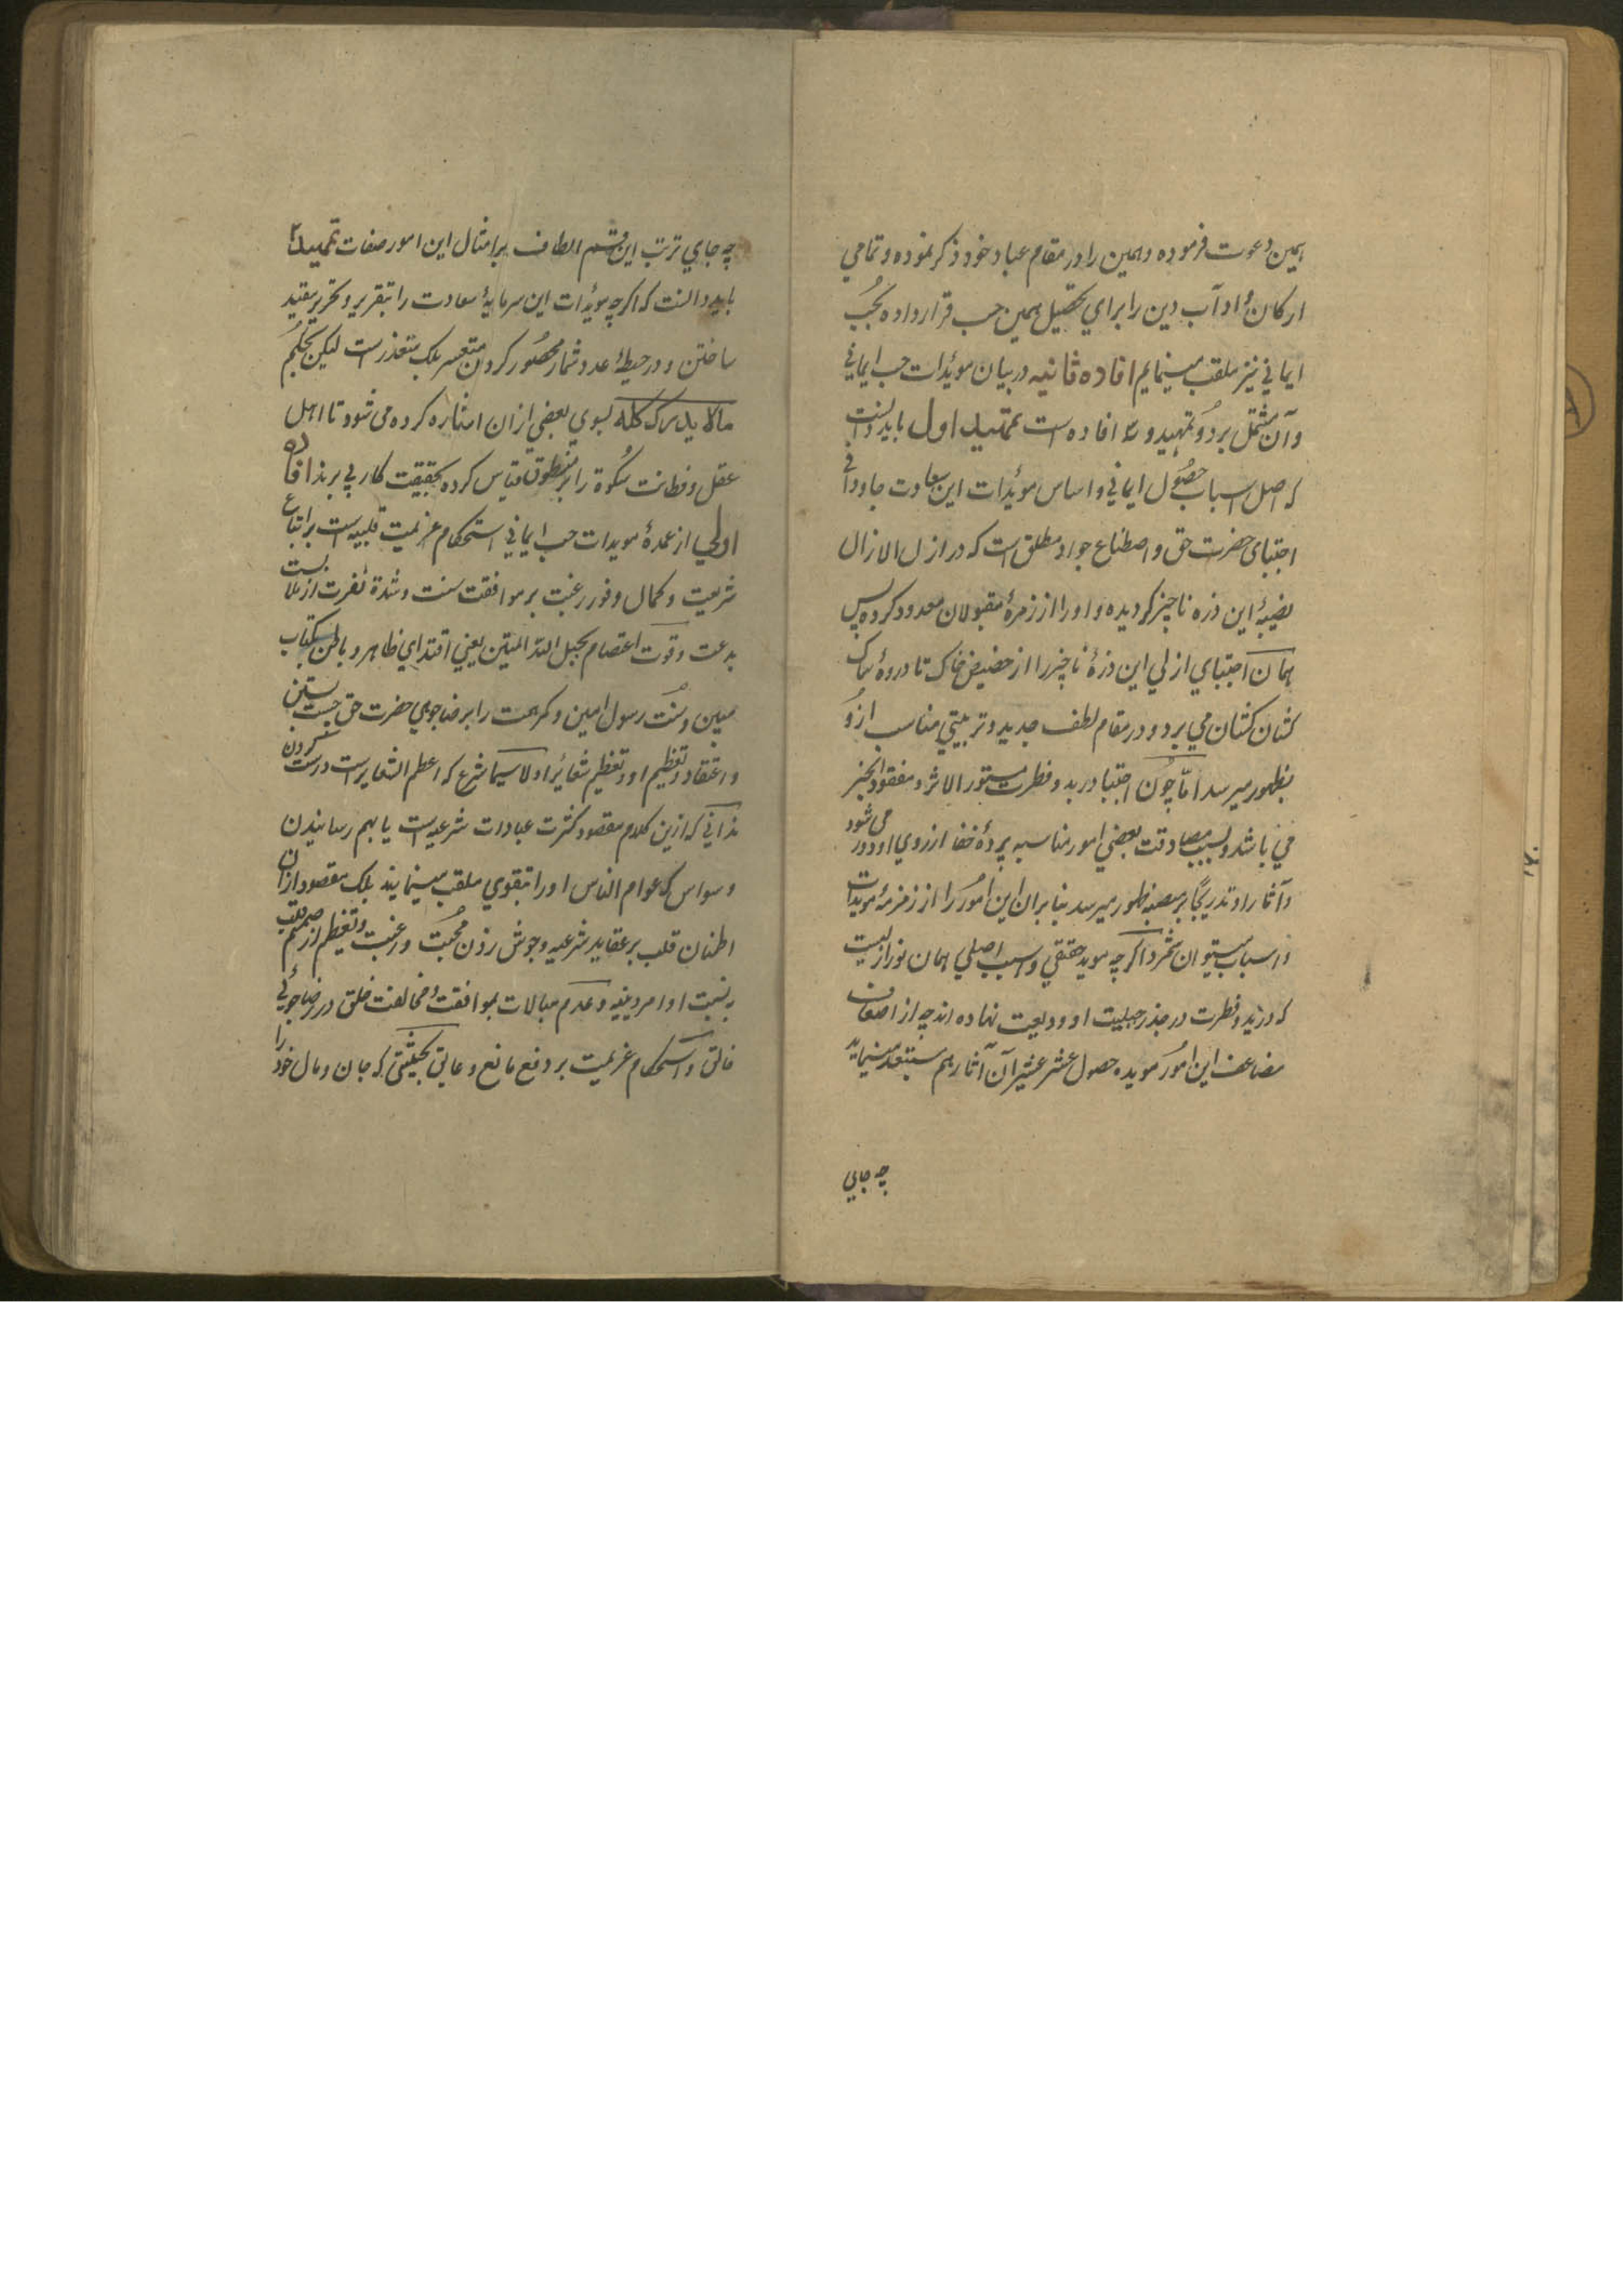 همین دعوت فرموده و همین را در مقام عباد خود ذکر نموده و تمامی
ارکان و اداب دین را برای تحصیل همین حب قرار داده بحب
ایمانی نیز ملقب مینمایم افاده ثانیه در بیان مویدات حب ایمانی
و آن مشتمل بر دو تمهید و افاده است تمهید اول باید دانست
که اصل اسباب حصول ایمانی و اساس مؤیدات این سعادت جاودانی
اجتبای حضرت حق و اصطناع جواد مطلق است که در ازل الازال
نصیبهٔ این ذره ناچیز گردیده و او را از زمرهٔ مقبولان معدود کرده پس
همان اجتبای ازلی این ذرهٔ ناچیز را از حضیض خاک تا ذروهٔ سماک
کشان کشان می برد و در مقام لطف جدید و تربیتی مناسب از و
بظهور میرسد اما چون اجتبا در بدو فطرت مستور الاثر و مفقود الخبر
می باشد و بسبب مصادقت بعضی امور مناسبه پردهٔ خفا از روی او دور می شود
و آثار او تدریجا بر منصه ظهور میرسد بنابران این امور را از زمرهٔ مویدات
و اسباب میتوان شمرد اگرچه موید حقیقی و سبب اصلی همان نور ازلیست
که در بدو فطرت در جذر جبلیت او ودیعت نهاده اند چه از اضعاف
مضاعف این امور مویده حصول عشر عشیر آن آثار هم مستبعد مینماید
چه جایی
چه جای ترتب این قسم الطاف بر امثال این امور صفات تمهید ۲
باید دانست که اگرچه مویدات این سرمایهٔ سعادت را بتقریر و تحریر مقید
ساختن و در حیطهٔ عد و شمار محصور کردن متعسر بلک متعذر است لیکن بحکم
مالا یدرک کله بسوی بعضی ازان اشاره کرده می شود تا اهل
عقل و فطانت مسکوة را بر منطوق قیاس کرده بحقیقت کار پی برند افاده
اولی از عمدهٔ مویدات حب ایمانی استحکام عزیمت قلبیه است بر اتباع
شریعت و کمال وفور رغبت بر موافقت سنت و شدة نفرت از ملابست
بدعت و قوت اعتصام بحبل الله المتین یعنی اقتدای ظاهر و باطن بکتاب
مبین و سنت رسول امین و کمر همت را بر رضاجوی حضرت حق چست بستن
و اعتقاد و تعظیم او و تعظیم شعائر او لا سیما شرع که اعظم الشعایر است درست کردن
ندانی که ازین کلام مقصود کثرت عبادات شرعیه است یا بهم رسانیدن
وسواس که عوام الناس او را بتقوی ملقب مینمایند بلک مقصود ازان
اطمنان قلب بر عقاید شرعیه و جوش زدن محبت و رغبت و تعظیم از صمیم قلب
به نسبت اوامر دینیه و عدم مبالات بموافقت و مخالفت خلق در رضاجوئی
خالق و استحکام عزیمت بر دفع مانع و عایق بحیثیتی که جان و مال خود را